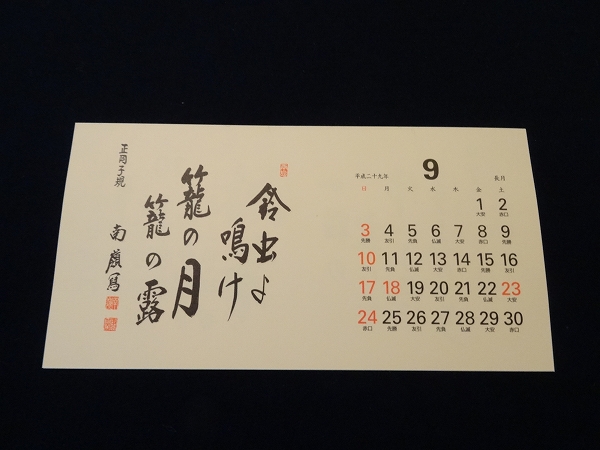 鈴虫よ
鳴け
籠の月
籠の露
正岡子規
南嶺写
9
平成二十九年
長月
日 月 火 水 木 金 土
1 2
大安 赤口
3 4 5 6 7 8 9
先勝 友引 先負 仏滅 大安 赤口 先勝
10 11 12 13 14 15 16
友引 先負 仏滅 大安 赤口 先勝 友引
17 18 19 20 21 22 23
先負 仏滅 大安 友引 先負 仏滅 大安
24 25 26 27 28 29 30
赤口 先勝 友引 先負 仏滅 大安 赤口